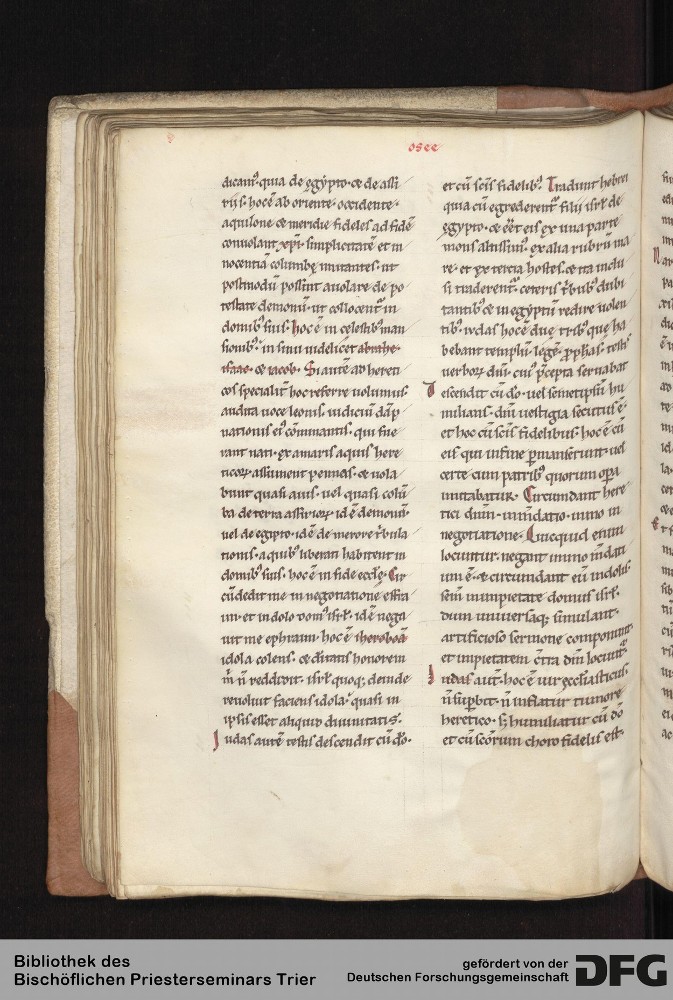 osee
dicam⁹. quia de egypto. & de assi
riis. hoc ē ab oriente. occidente.
aquilone & meridie fideles ad fidē
conuolant xp̄i. simplicitatē et in
nocentiā columbę imitantes. ut
postmodū possint auolare de po
testate demonū. ut collocent̄ in
domib⁹ suis. hoc ē in celestib⁹ man
sionib⁹. in sinu uidelicet abrahe.
isaac. & iacob. Si autē ad hereti
cos specialit̄ hoc referre uolumus.
audita uoce leonis. iudiciū dāp
nationis ei⁹ cōminantis. qui fue
rant nati ex amaris aquis here
ticoꝝ assument pennas. & uola
bunt quasi auis. uel quasi colū
ba de terra assirioꝝ id ē demonū.
uel de egipto. id ē de merore t̄bula
tionis. a quib⁹ liberati habitent in
domib⁹ suis. hoc ē in fide eccłe. Cir
cūdedit me in negotiatione effra
im. et in dolo dom⁹ isr̄l. id ē nega
uit me ephraim. hoc ē iheroboā
idola colens. & diuitatis honorem
m̄ n̄ reddidit. isr̄l quoq; deinde
reuoluit faciens idola. quasi in
ipsis esset aliquid diuinitatis.
Iudas autē testis descendit cū dō.
et cū sc̄is fidelib⁹. Tradunt hebrei
quia cū egrederent̄ filii isr̄l de
egypto. & eēt eis ex una parte
mons altissim⁹. ex alia rubrū ma
re. et ex tercia hostes. & ita inclu
si traderent̄. ceteris t̄bub⁹ dubi
tantib⁹ & in egyptū redire uolen
tib⁹. iudas hoc ē due trib⁹ que ha
bebant templū. legē. ꝓphas. testis
uerboꝝ dn̄i. cui⁹ p̄cepta seruabat
descendit cū dō. uel semetipsū hu
milians. dn̄i uestigia secutus ē.
et hoc cū sc̄is fidelibus. hoc ē cū
eis qui in fine ꝑmanserunt. uel
certe cum patrib⁹ quorum oꝑa
imitabatur. Circumdant here
tici dn̄m. in mdatio. immo in
negotiatione. Quicquid enim
locuntur. negant immo mdati
um ē. & circumdant eū in dolis.
seū in impietate domus isr̄l.
dum uniuersaq; simulant.
artificioso sermone componunt.
et impietatem c̄tra dn̄m locunt̄.
Iudas aut̄. hoc ē uir ecclesiasticus.
n̄ suꝑbit. n̄ inflatur tumore
heretico. s; humiliatur cū dō
et cū sc̄orum choro fidelis est.
Bibliothek des
Bischöflichen Priesterseminars Trier
gefördert von der
Deutschen Forschungsgemeinschaft
DFG